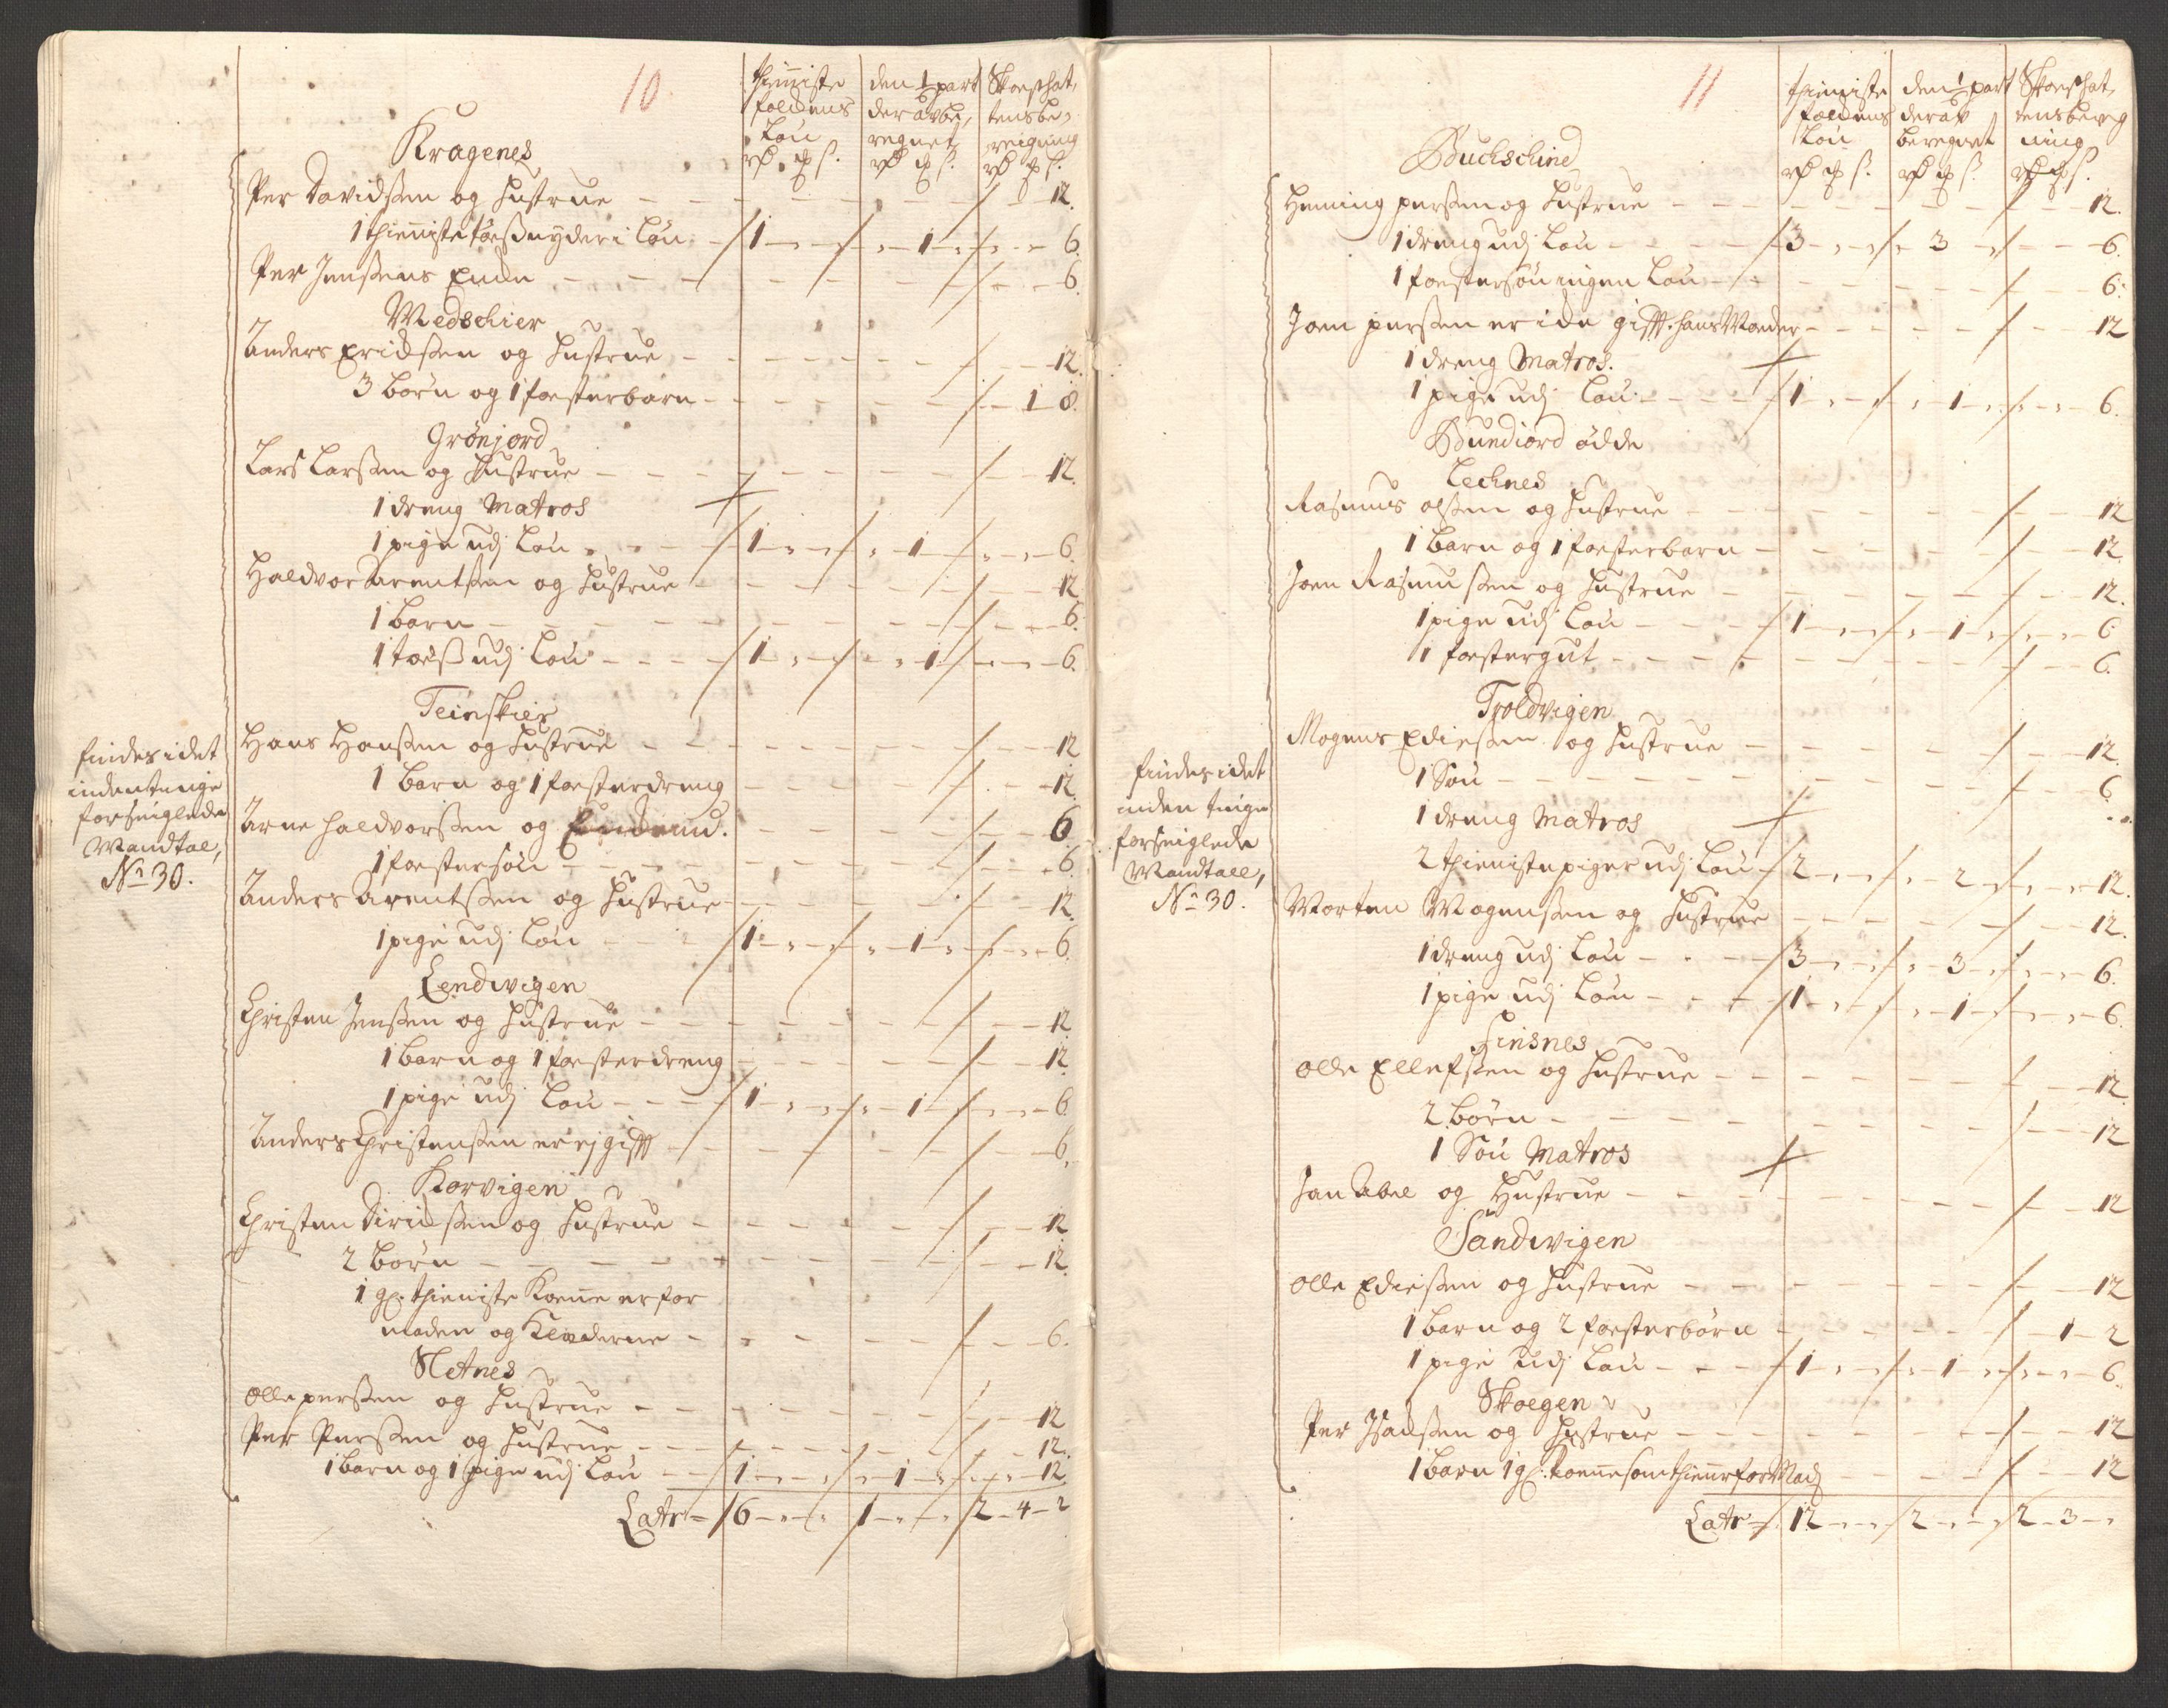 10
thieniste
folckens
Løn
rd. ort. s.
den 1/6 part
der av be-
regnet
rd. ort. s.
Skoeschat-
tens be-
reigning
rd. ort. s.
Kragenes
Per Davidsen og Hustrue - - - 12.
1 thieniste tøes nyder i Løn - 1 - - 1 - - 6
Per Jensens Encke - - - 6.
Medschier
Anders Eridsen og Hustrue - - - 12.
3 børn og 1 fosterbarn - - - 1 - 8.
Grønjord
Lars Larsen og Hustrue - - - 12.
1 dreng Matros +
1 pige udj Løn - 1 - - 1 - - 6.
Haldvor Arentsen og Hustrue - - - 12
1 barn - - - 6.
1 tøes udj Løn - 1 - - 1 - - 6.
Teinskier
Hans Hansen og Hustrue - - - 12
1 barn og 1 fosterdreng - - - 12.
Arne Haldvorsen og - - - 6
1 fostersøn - - - 6.
Anders Arentsen og Hustrue - - - 12.
1 pige udj Løn - 1 - - 1 - - 6.
Lendvigen
Christen Jensen og Hustrue - - - 12
1 barn og 1 fosterdreng - - - 12.
1 pige udj Løn - 1 - - 1 - - 6.
Anders Christensen er ej gifft - - - 6.
Korvigen
Christen Diridsen og Hustrue - - - 12
2 børn - - - 12.
1 gl. thieniste Konne er for
maden og Klæderne - - - 6.
Sletnes
Olle persen og Hustrue - - - 12
Per Persen og Hustrue - - - 12.
1 barn og 1 pige udj Løn - 1 - - 1 - - 12
Latr = 6 - - 1 - - 2 - 4 - 2
findes i det
inden tinge
forseiglede
Mandtal,
No 30.
11
thieniste
folckens
Løn
rd. ort. s.
den 1/6 part
der av
beregnet
rd. ort. s.
Skoeschat-
tens bereg
ning
rd. ort. s.
Buchschind
Heming persen og Hustrue - - - 12.
1 dreng udj Løn - 3 - - 3 - - 6.
1 fostersøn ingen Løn - - - 6.
Joen persen er icke gifft. hans Moder - - - 12
1 dreng Matros. +
1 pige udj Løn - 1 - - 1 - - 6.
Bundiord ødde
Lechnes
Rasmus olsen og Hustrue - - - 12
1 barn og 1 fosterbarn - - - 12.
Joen Rasmusen og Hustrue - - - 12.
1 pige udj Løn - 1 - - 1 - - 6
1 fostergut - - - 6.
Troldvigen
Mogens Ediesen og Hustrue - - - 12.
1 Søn - - - 6.
1 dreng Matros +
2 thieniste piger udj Løn - 2 - - 2 - - 12.
Morten Mogensen og Hustrue - - - 12.
1 dreng udj Løn - 3 - - 3 - - 6.
1 pige udj Løn - 1 - - 1 - - 6.
Finsnes
Olle Ellefsen og Hustrue - - - 12.
2 børn - - - 12
1 Søn Matros +
Jan Abel og Hustrue - - - 12
Sandvigen
Olle Ediesen og Hustrue - - - 12
1 barn og 2 fosterbørn - - - 1 - 2
1 pige udj Løn - 1 - - 1 - - 6.
Skoegen
Per Isaksen og Hustrue - - - 12
1 barn 1 gl. Konne som thiener for Mad - - - 12
Latr = 12 - - 2 - - 2 - 3 -
findes i det
inden tinge
forseiglede
Mandtall,
No 30.